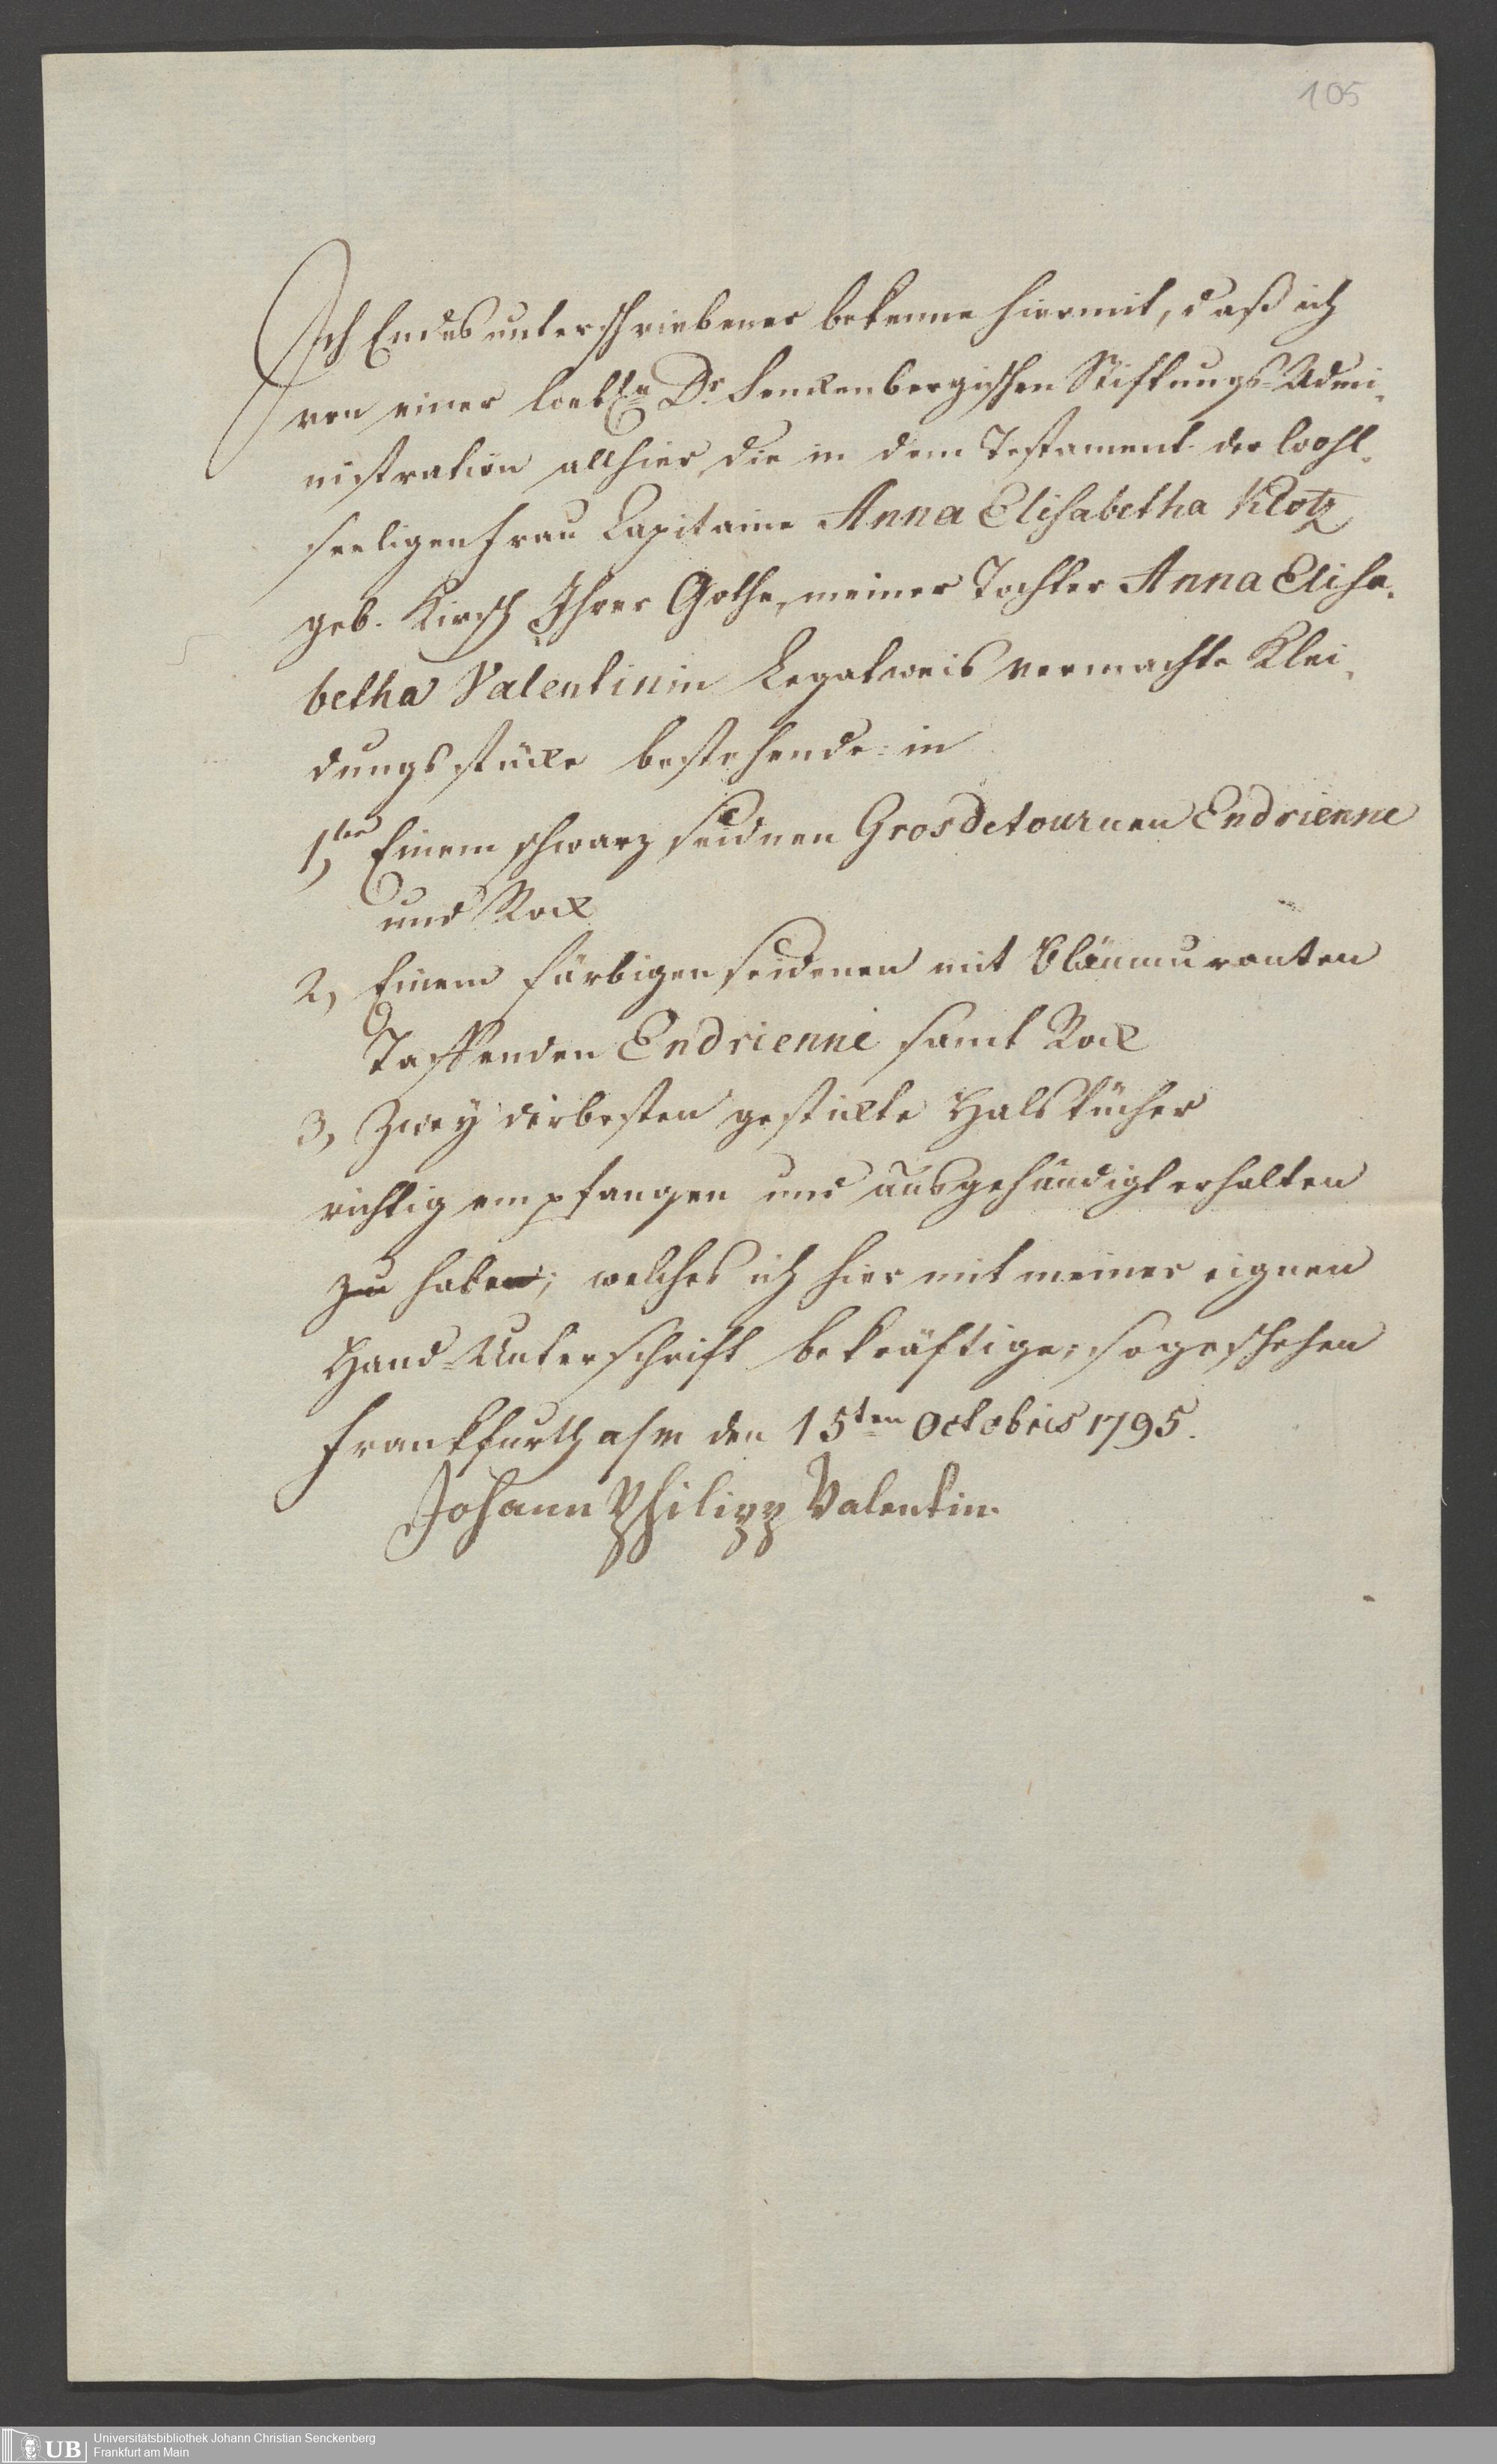 105
Ich Endesunterschriebener bekenne hiermit, daß ich
von einer loebln Dr. Senckenbergischen Stiftungs-Admi-
nistration allhier, die in dem Testament der wohl-
seeligen Frau Capitaine Anna Elisabetha Klotz
geb. Kirsch Ihrer Gothe, meiner Tochter Anna Elisa-
betha Valentinin Legatweis vermachte Klei-
dungsstücke bestehende: in
1,tens Einem schwarz seidnen Grosdetournen Endrienne
und Rock
2, Einem färbigen seidenen mit bläumuranten
Taffenden Endrienne samt Rock
3, Zwey derbesten gestickte Halstücher
richtig empfangen und ausgehändigt erhalten
zu haben; welches ich hier mit meiner eignen
Hand-Unterschrift bekräftige; so geschehen
Franckfurth a/m den 15ten Octobris 1795.
Johann Philipp Valentin.
UB
Universitätsbibliothek Johann Christian Senckenberg
Frankfurt am Main